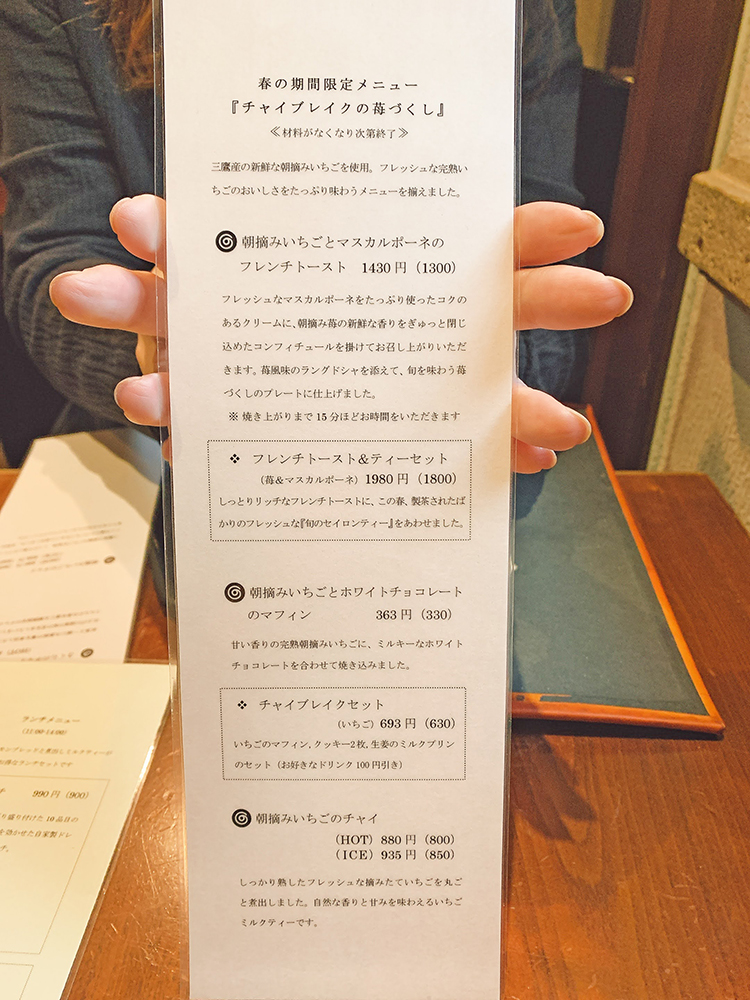 春の期間限定メニュー
『チャイブレイクの苺づくし』
≪材料がなくなり次第終了≫
三鷹産の新鮮な朝摘みいちごを使用。フレッシュな完熟い
ちごのおいしさをたっぷり味わうメニューを揃えました。
朝摘みいちごとマスカルポーネの
フレンチトースト 1430円（1300）
フレッシュなマスカルポーネをたっぷり使ったコクの
あるクリームに、朝摘み苺の新鮮な香りをぎゅっと閉じ
込めたコンフィチュールを掛けてお召し上がりいただ
きます。苺風味のラングドシャを添えて、旬を味わう苺
づくしのプレートに仕上げました。
※ 焼き上がりまで15分ほどお時間をいただきます
❖ フレンチトースト＆ティーセット
（苺＆マスカルポーネ）1980円（1800）
しっとりリッチなフレンチトーストに、この春、製茶されたば
かりのフレッシュな『旬のセイロンティー』をあわせました。
朝摘みいちごとホワイトチョコレート
のマフィン 363円（330）
甘い香りの完熟朝摘みいちごに、ミルキーなホワイト
チョコレートを合わせて焼き込みました。
❖ チャイブレイクセット
（いちご）693円（630）
いちごのマフィン，クッキー2枚，生姜のミルクプリン
のセット（お好きなドリンク100円引き）
朝摘みいちごのチャイ
（HOT）880円（800）
（ICE）935円（850）
しっかり熟したフレッシュな摘みたていちごを丸ご
と煮出しました。自然な香りと甘みを味わえるいちご
ミルクティーです。
ランチメニュー
(11:00-14:00)
990円（900）